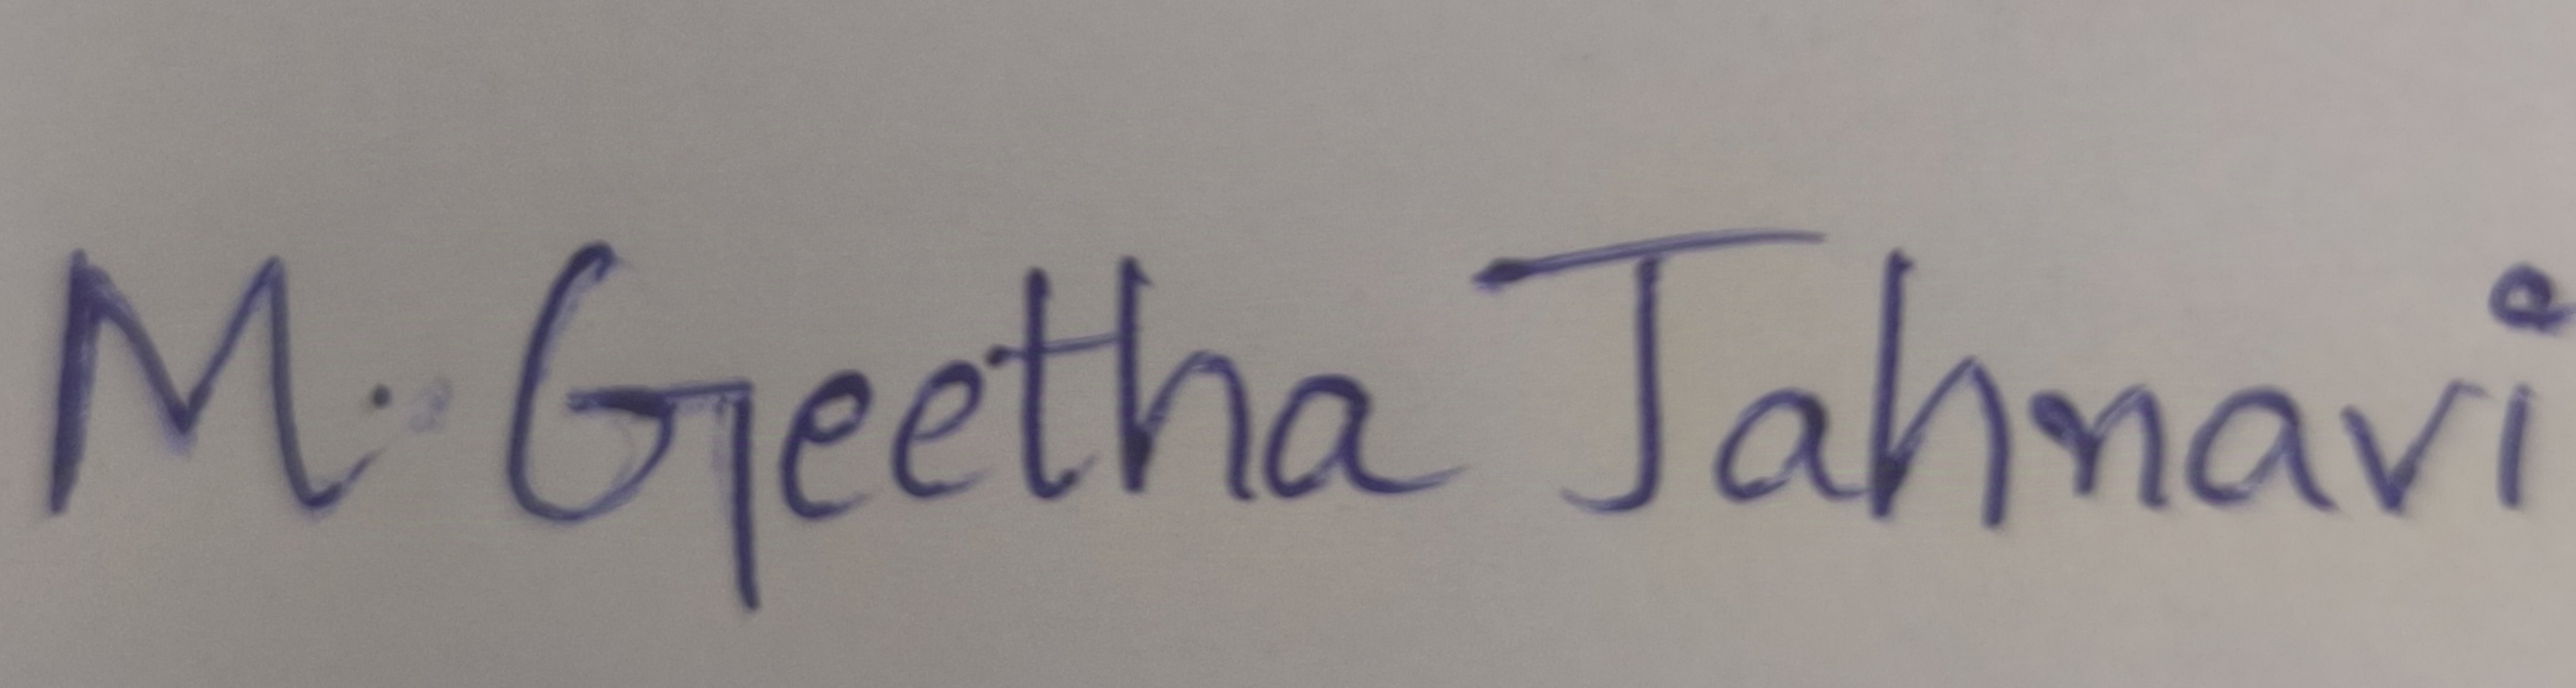 M. Geetha Jahnavi